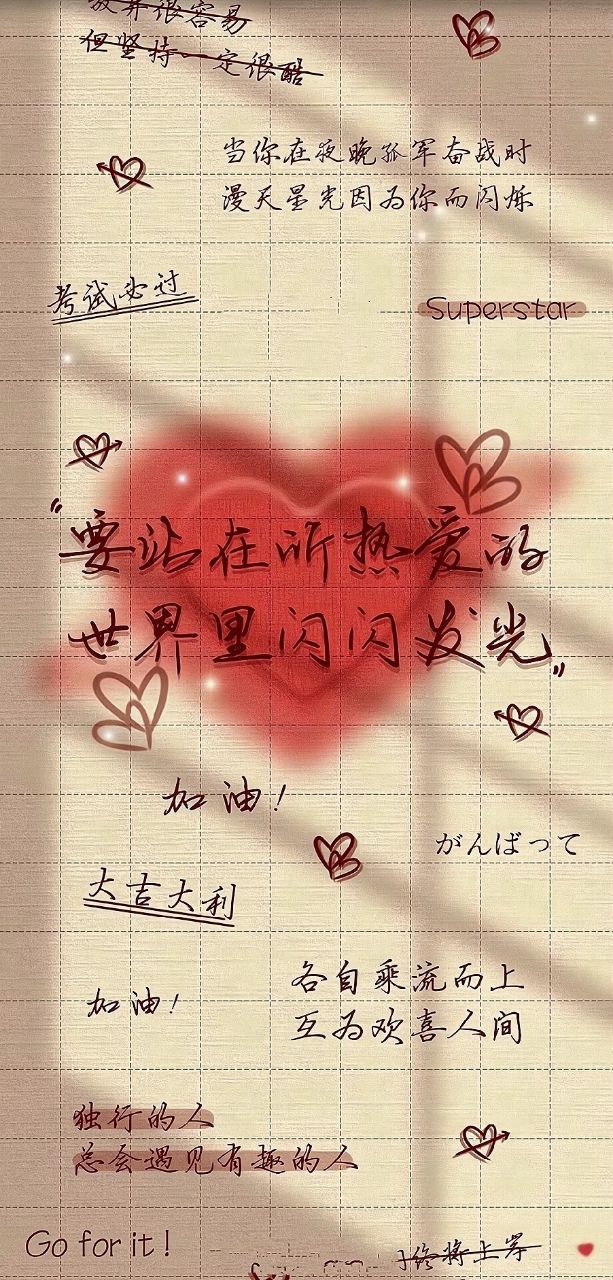 放弃很容易
但坚持一定很酷
当你在夜晚孤军奋战时
漫天星光因为你而闪烁
考试必过
Superstar
“要站在所热爱的
世界里闪闪发光”
加油!
がんばって
大吉大利
各自乘流而上
互为欢喜人间
加油!
独行的人
总会遇见有趣的人
Go for it!
终将上岸